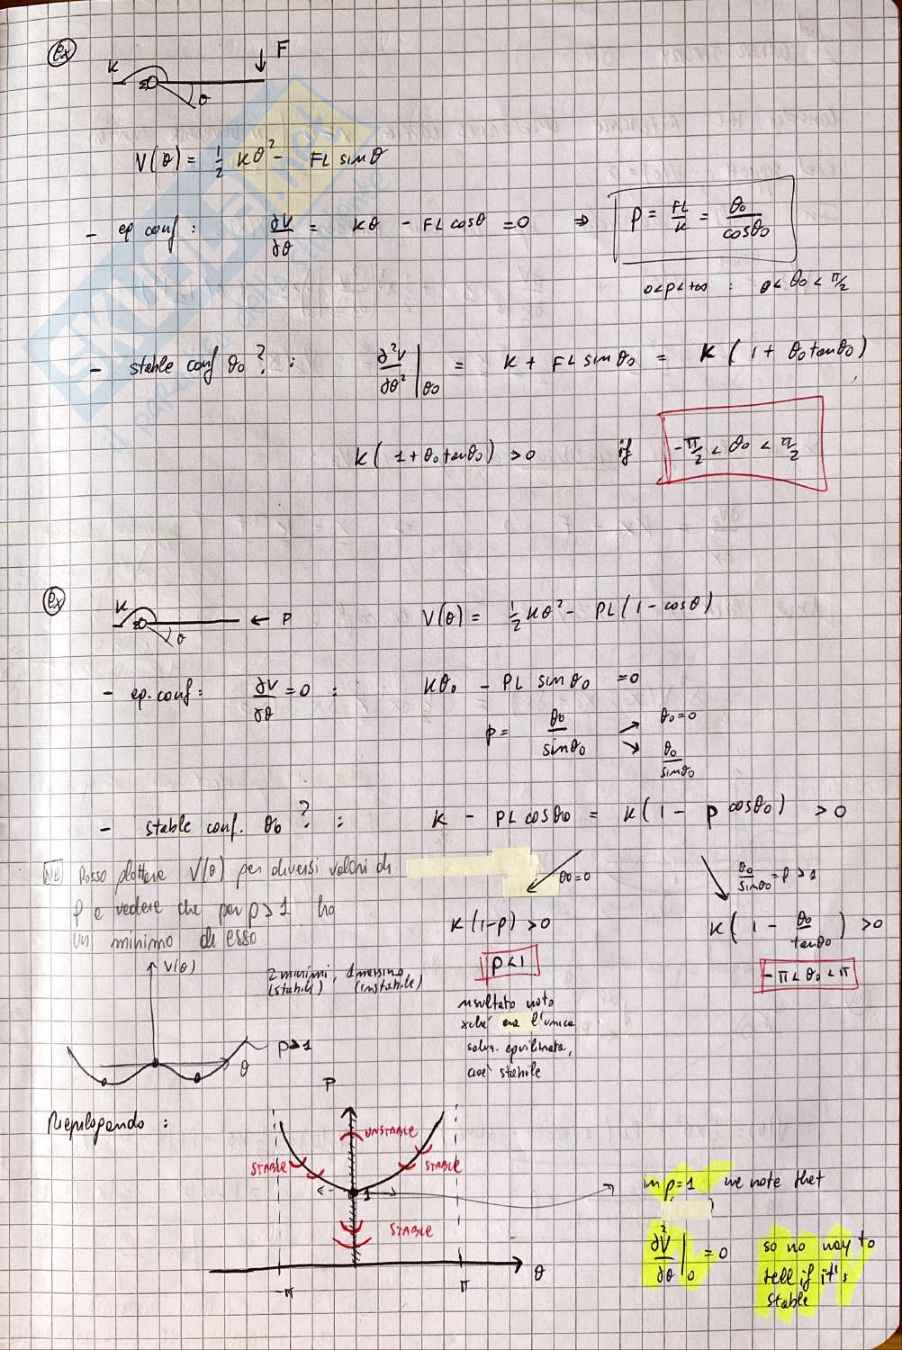 ex
K
F
θ
V(θ) = 1/2 Kθ² - FL sinθ
- eq conf : ∂V/∂θ = Kθ - FL cosθ = 0 ⇒ p = FL/K = θ₀/cosθ₀
0<p<+∞ : 0 < θ₀ < π/2
- stable conf θ₀ ? : ∂²V/∂θ² |θ₀ = K + FL sinθ₀ = K ( 1 + θ₀tanθ₀)
K ( 1 + θ₀tanθ₀) > 0 if -π/2 < θ₀ < π/2
ex
K
P
θ
V(θ) = 1/2 Kθ² - PL(1 - cosθ)
- eq. conf : ∂V/∂θ = 0 : Kθ₀ - PL sinθ₀ = 0
p = θ₀/sinθ₀ → θ₀=0
→ θ₀/sinθ₀
- stable conf. θ₀ ? : K - PL cosθ₀ = K(1 - p cosθ₀) > 0
Posso plottare V(θ) per diversi valori di
p e vedere che per p>1 ho
un minimo di esso
θ₀=0
K(1-p) > 0
p<1
risultato noto
xché era l'unica
soluz. equilibrata,
cioè stabile
θ₀/sinθ₀ = p > 1
K( 1 - θ₀/tanθ₀ ) > 0
-π < θ₀ < π
V(θ)
2 minimi , 1 massimo
(stabile) (instabile)
p>1
θ
Riepilogando :
P
UNSTABLE
STABLE
STABLE
1
STABLE
-π
π
θ
in p=1 we note that
∂²V/∂θ |₀ = 0
so no way to
tell if it's
stable
SKUOLA.net